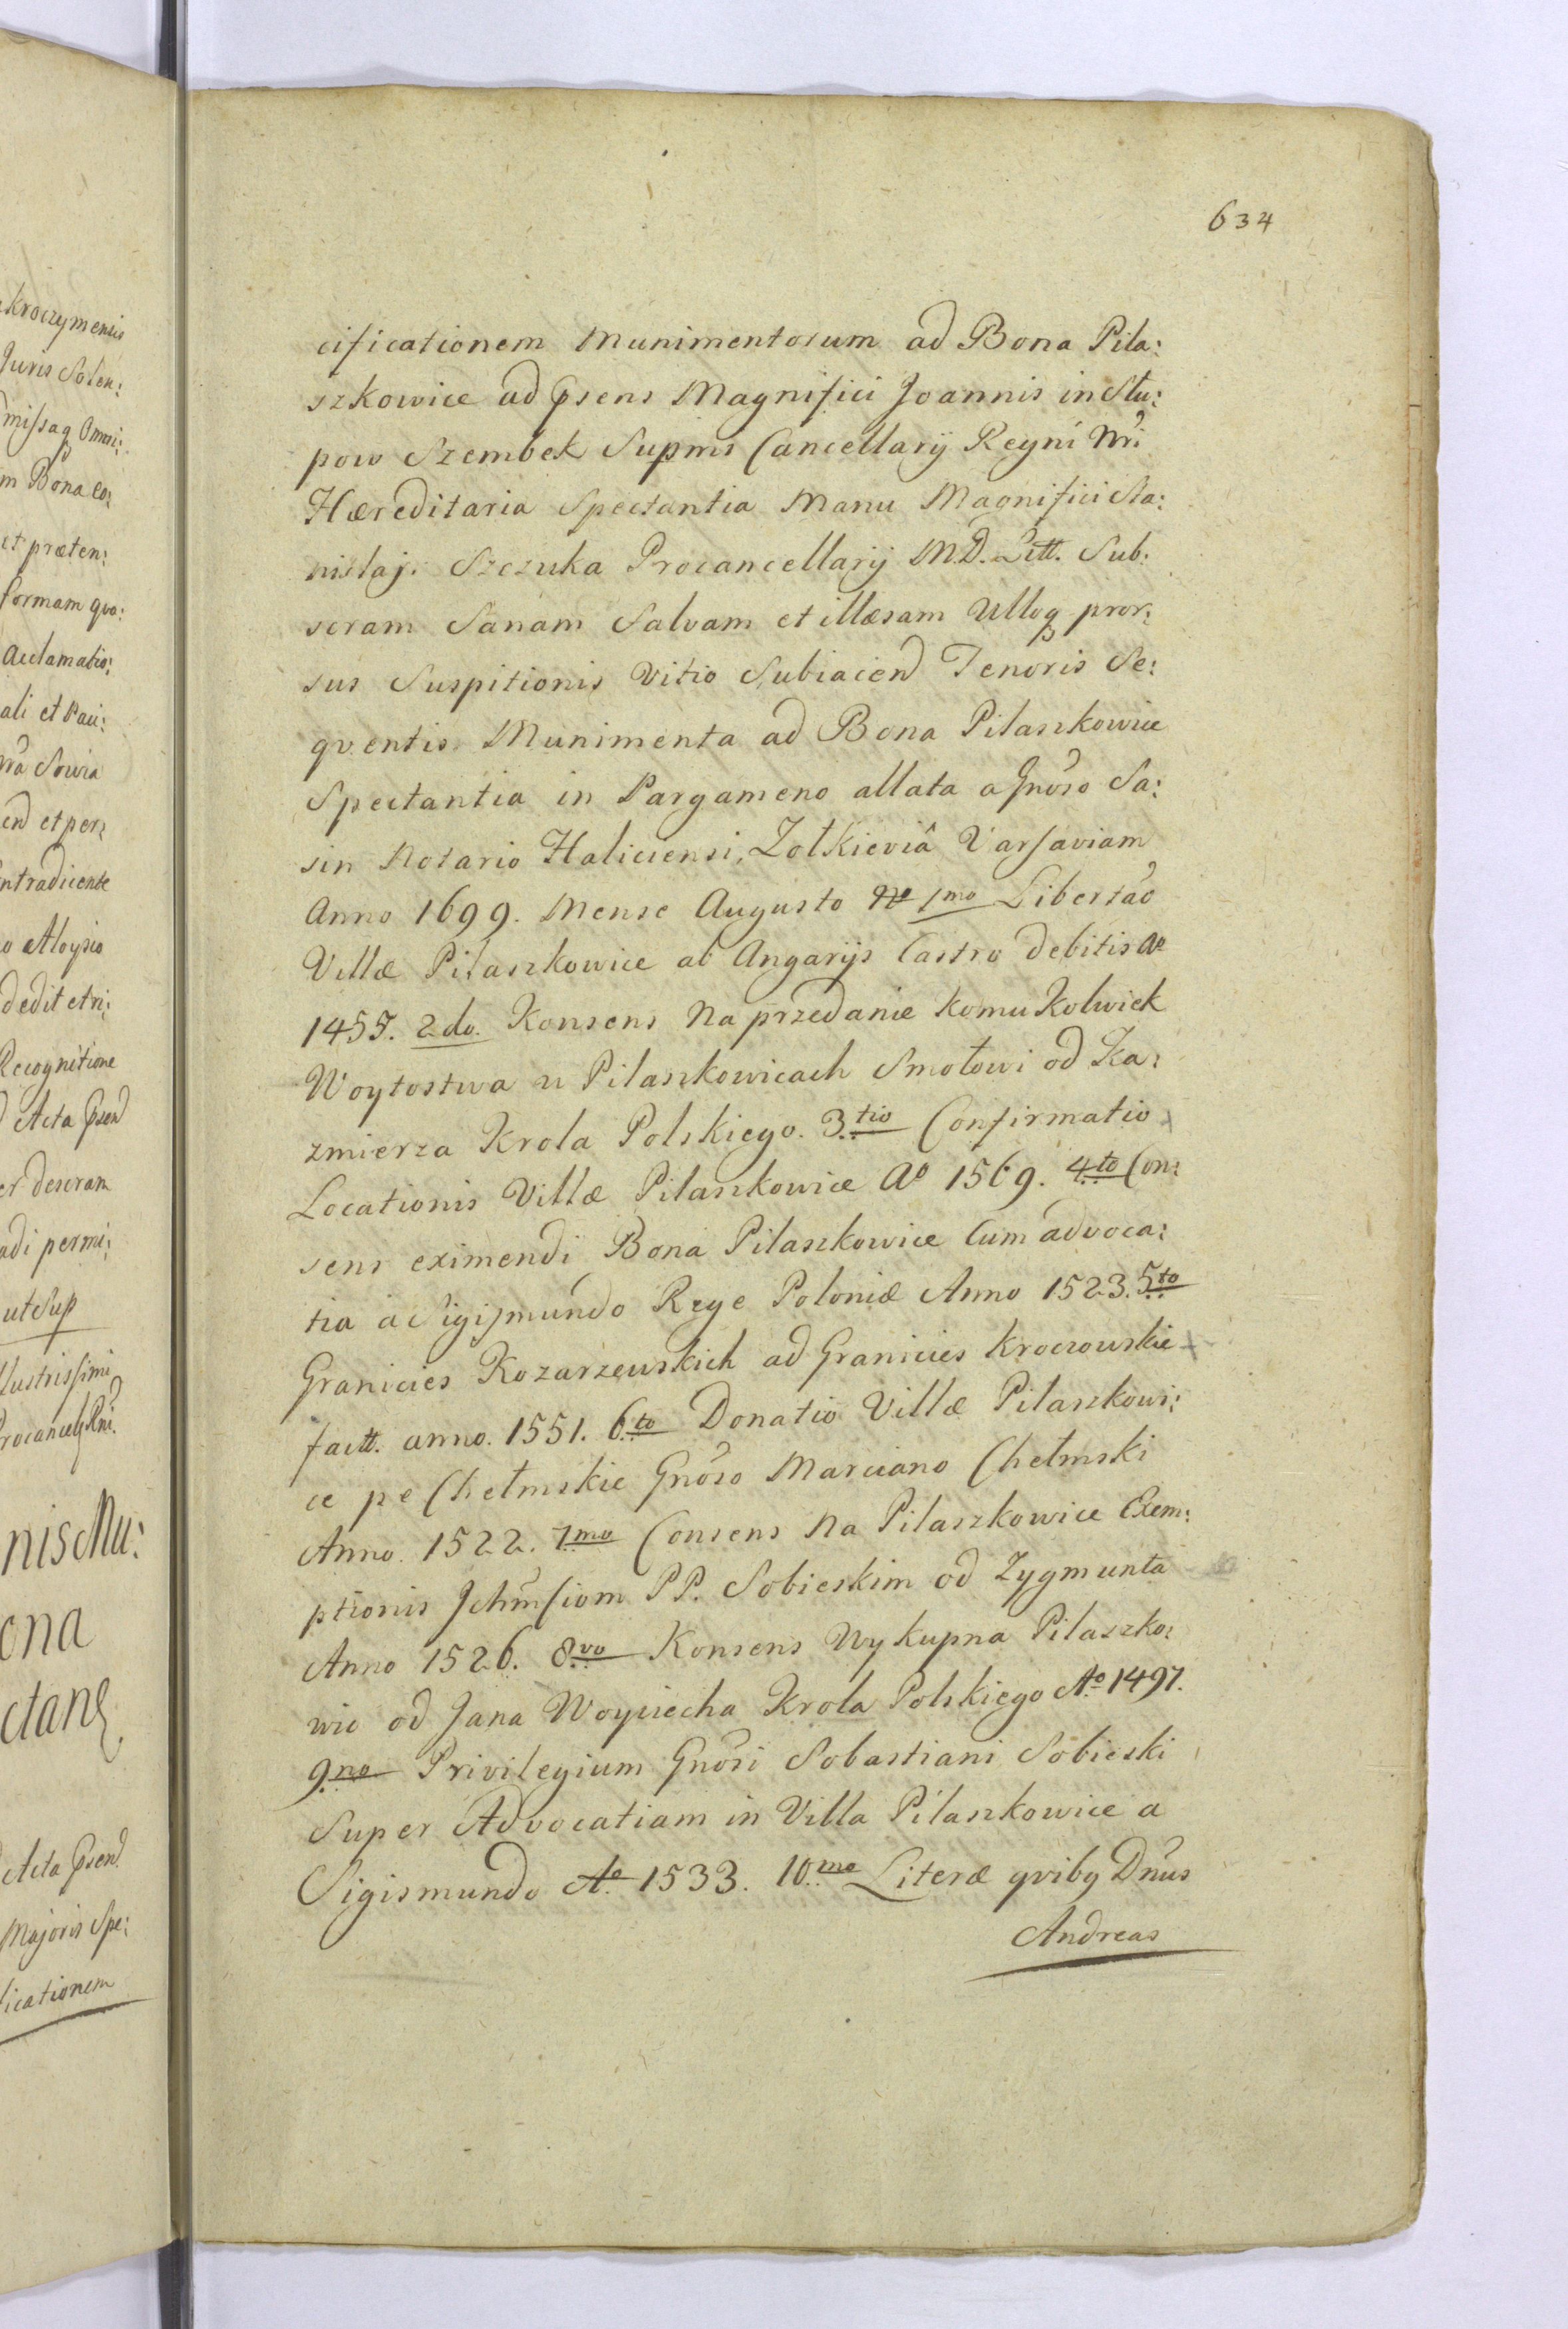 kroczymensis
Juris Solen:
missaq Omni:
m Bona eo:
et præten:
formam qvo:
Acclamatio:
ali et Pau:
end et per:
ntradicente
o Aloysio
dedit et ri:
Recognitione
Acta Psend
er descram
adi permi:
ut Sup
lustrissimi
nis Mu:
ona
ctane
Acta Psend
Majoris Spe:
licationem
634
cificationem Munimentorum ad Bona Pila:
szkowice ad Psens Magnifici Joannis in Słu:
pow Szembek Supms Cancellarij Regni Nri
Hæreditaria Spectantia Manu Magnifici Sta:
nislaj. Szczuka Procancellarij M.D. Litt. Sub:
scram Sanam Salvam et illæsam Ulloq pror:
sus Suspitionis Vitio Subiacend Tenoris Se:
qventis. Munimenta ad Bona Pilaszkowice
Spectantia in Pargameno allata a Gnoso Sa:
sin Notario Haliciensi, Zołkieviâ Varsaviam
Anno 1699. Mense Augusto 1mo Libertao
Villæ Pilaszkowice ab Angarijs Castro debitis Ao
1455. 2do. Konsens Na przedanie komu Kolwiek
Woytostwa w Pilaszkowicach Smołowi od Ka:
zmierza Krola Polskiego. 3.tio Confirmatio
Locationis Villæ Pilaszkowice Ao 1569. 4.to Con:
sens eximendi Bona Pilaszkowice Cum advoca:
tia a Sigismundo Rege Poloniæ Anno 1523. 5.to
Granicies Kozarzewskich ad Granicies Kroczowskie
factt. anno. 1551. 6.to Donatio Villæ Pilaszkowi:
ce pe Chełmskie Gnoso Marciano Chełmski
Anno. 1522. 7.mo Consens Na Pilaszkowice Exem:
ptionis Jchmsciom PP. Sobieskim od Zygmunta
Anno 1526. 8.vo Konsens Wykupna Pilaszko:
wic od Jana Woyciecha Krola Polskiego Ao 1497.
9.no Privilegium Gnosi Sobastiani Sobieski
Super Advocatiam in Villa Pilaszkowice a
Sigismundo Ao 1533. 10.mo Literæ qvibg Dnus
Andreas